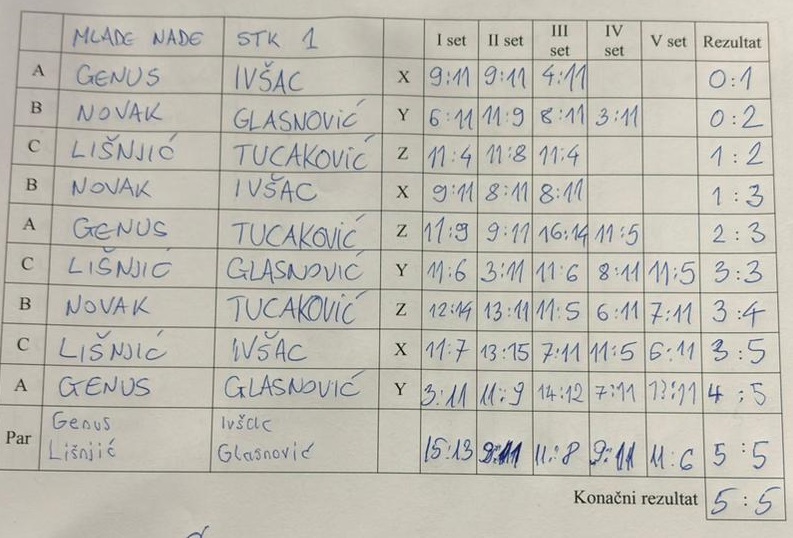 MLADE NADE STK 1 I set II set III set IV set V set Rezultat
A GENUS IVŠAC X 9:11 9:11 4:11 0:1
B NOVAK GLASNOVIĆ Y 6:11 11:9 8:11 3:11 0:2
C LIŠNJIĆ TUCAKOVIĆ Z 11:4 11:8 11:4 1:2
B NOVAK IVŠAC X 9:11 8:11 8:11 1:3
A GENUS TUCAKOVIĆ Z 11:9 9:11 16:14 11:5 2:3
C LIŠNJIĆ GLASNOVIĆ Y 11:6 3:11 11:6 8:11 11:5 3:3
B NOVAK TUCAKOVIĆ Z 12:14 13:11 11:5 6:11 7:11 3:4
C LIŠNJIĆ IVŠAC X 11:7 13:15 7:11 11:5 6:11 3:5
A GENUS GLASNOVIĆ Y 3:11 11:9 14:12 7:11 4:5
Par Genus Ivšac
Lišnjić Glasnović 15:13 11:8 9:11 11:6 5:5
Konačni rezultat 5:5